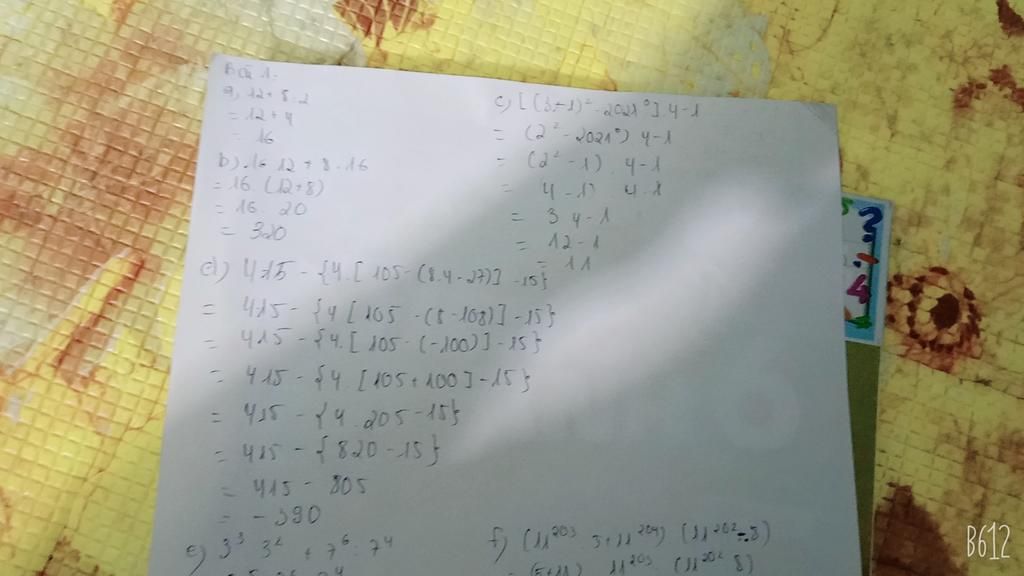 Bài 1:
a) 12 + 8 : 2
= 12 + 4
= 16
b) 16 . 12 + 8 . 16
= 16 . (12 + 8)
= 16 . 20
= 320
c) [ (3 - 1)² - 2021⁰ ] . 4 - 1
= (2² - 2021⁰) 4 - 1
= (2² - 1) . 4 - 1
= 4 - 1) 4 . 1
= 3 4 - 1
= 12 - 1
= 11
d) 415 - {4 . [ 105 - (8 . 4 - 27)] - 15}
= 415 - {4 [ 105 - (8 - 108)] - 15}
= 415 - {4 . [ 105 - (-100)] - 15}
= 415 - {4 . [105 + 100] - 15}
= 415 - {4 . 205 - 15}
= 415 - {820 - 15}
= 415 - 805
= - 390
e) 3³ 3² + 7⁶ : 7⁴
f) (11²⁰³ 5 + 11²⁰⁴) (11²⁰² 8)
= (5 + 11) 11²⁰³ (11²⁰² 8)
2
4
B612